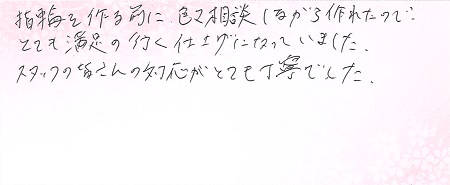 指輪を作る前に色々相談しながら作れたので、
とても満足の行く仕上げになっていました。
スタッフの皆さんの対応がとても丁寧でした。